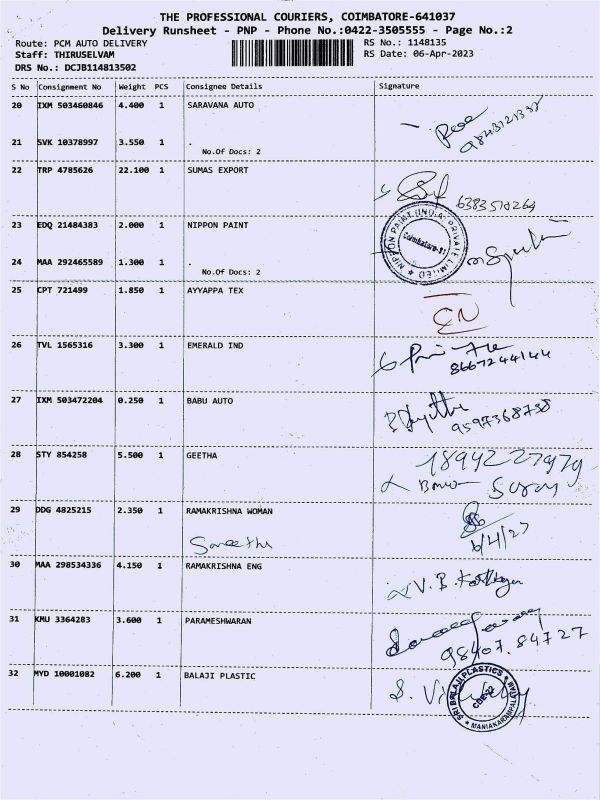 THE PROFESSIONAL COURIERS, COIMBATORE-641037
Delivery Runsheet - PNP - Phone No.:0422-3505555 - Page No.:2
Route: PCM AUTO DELIVERY
RS No.: 1148135
Staff: THIRUSELVAM
RS Date: 06-Apr-2023
DRS No.: DCJB114813502
S No Consignment No Weight PCS Consignee Details Signature
20 IXM 503460846 4.400 1 SARAVANA AUTO
21 SVK 10378997 3.550 1 .
No.Of Docs: 2
22 TRP 4785626 22.100 1 SUMAS EXPORT
23 EDQ 21484383 2.000 1 NIPPON PAINT
NIPPON PAINT (INDIA) PRIVATE LIMITED
Coimbatore-11
24 MAA 292465589 1.300 1 .
No.Of Docs: 2
25 CPT 721499 1.850 1 AYYAPPA TEX
EN
26 TVL 1565316 3.300 1 EMERALD IND
8667244144
27 IXM 503472204 0.250 1 BABU AUTO
9597368738
28 STY 854258 5.500 1 GEETHA
18942 27979
29 DDG 4825215 2.350 1 RAMAKRISHNA WOMAN
6/4/23
30 MAA 298534336 4.150 1 RAMAKRISHNA ENG
31 KMU 3364283 3.600 1 PARAMESHWARAN
98407.84727
32 MYD 10001082 6.200 1 BALAJI PLASTIC
SRI BALAJI PLASTICS